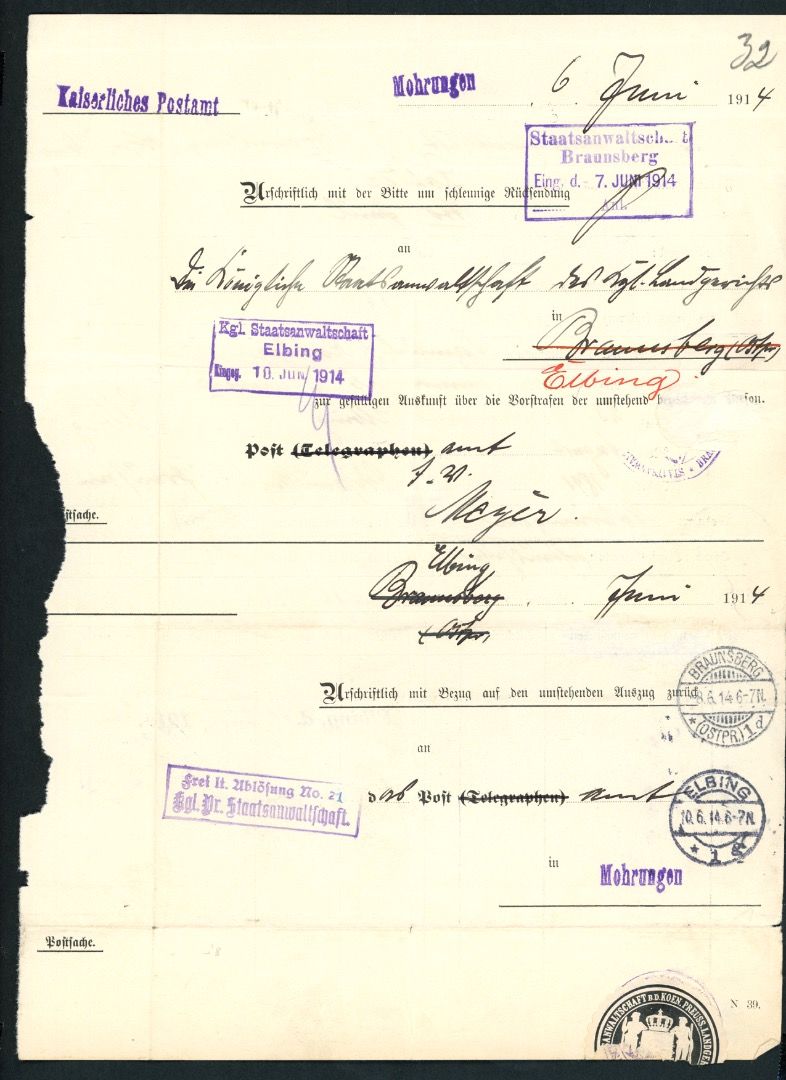 32
Kaiserliches Postamt
Mohrungen 6 Juni 1914
Staatsanwaltsch..t
Braunsberg
Eing. d. - 7. JUNI 1914
Anl.
Urschriftlich mit der Bitte um schleunige Rücksendung
an
die Königliche Staatsanwaltschaft des Kgl. Landgerichts
in
Braunsberg (Ostpr)
Elbing
Kgl. Staatsanwaltschaft
Elbing
Eingeg. 10. JUNI 1914
zur gefälligen Auskunft über die Vorstrafen der umstehend
Post (Telegraphen) amt
J. V.
Meyer.
stsache.
Elbing
Braunsberg, Juni 1914
(Ostpr)
BRAUNSBERG
8.6.14.6-7N.
* (OSTPR.) 1d
Urschriftlich mit Bezug auf den umstehenden Auszug zurück
an
Frei lt. Ablösung No. 21
Kgl. Pr. Staatsanwaltschaft.
das Post (Telegraphen) amt
ELBING
10.6.14.6-7N.
* 1
in
Mohrungen
Postsache.
N 39.
ANWALTSCHAFT B.D. KOEN. PREUSS. LANDGER